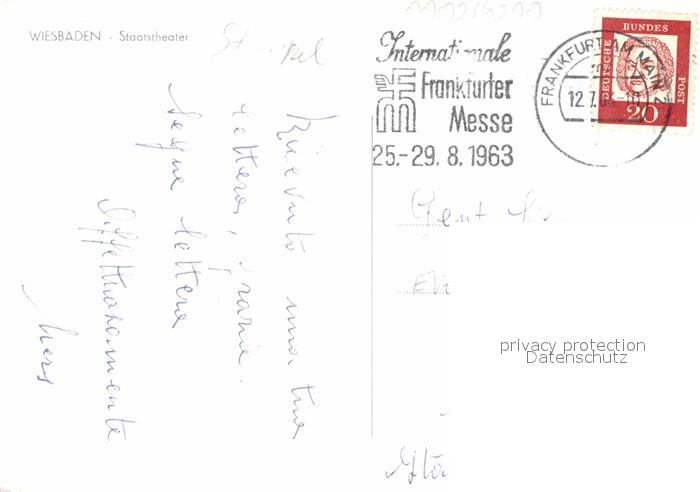 WIESBADEN - Staatstheater
Internationale
Frankfurter
Messe
25.-29. 8. 1963
FRANKFURT AM MAIN 2
12.7.6
DEUTSCHE BUNDESPOST
20
Ricevuto una tua
lettera, grazie.
Segue lettera
Affettuosamente
Gent
privacy protection
Datenschutz